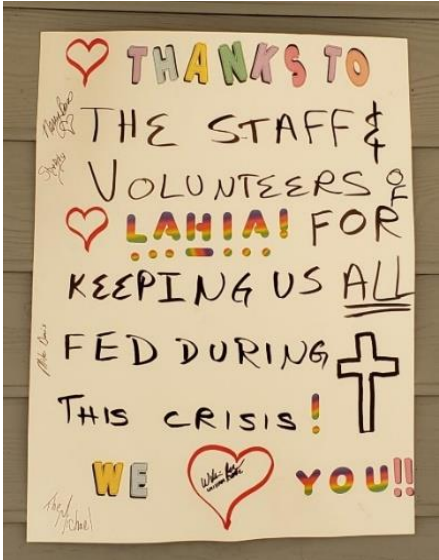 THANKS TO
THE STAFF &
VOLUNTEERS OF
LAHIA! FOR
KEEPING US ALL
FED DURING
THIS CRISIS!
WE YOU!!